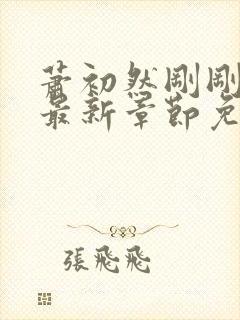 蕭初然剛剛
最新章節免
張飛飛